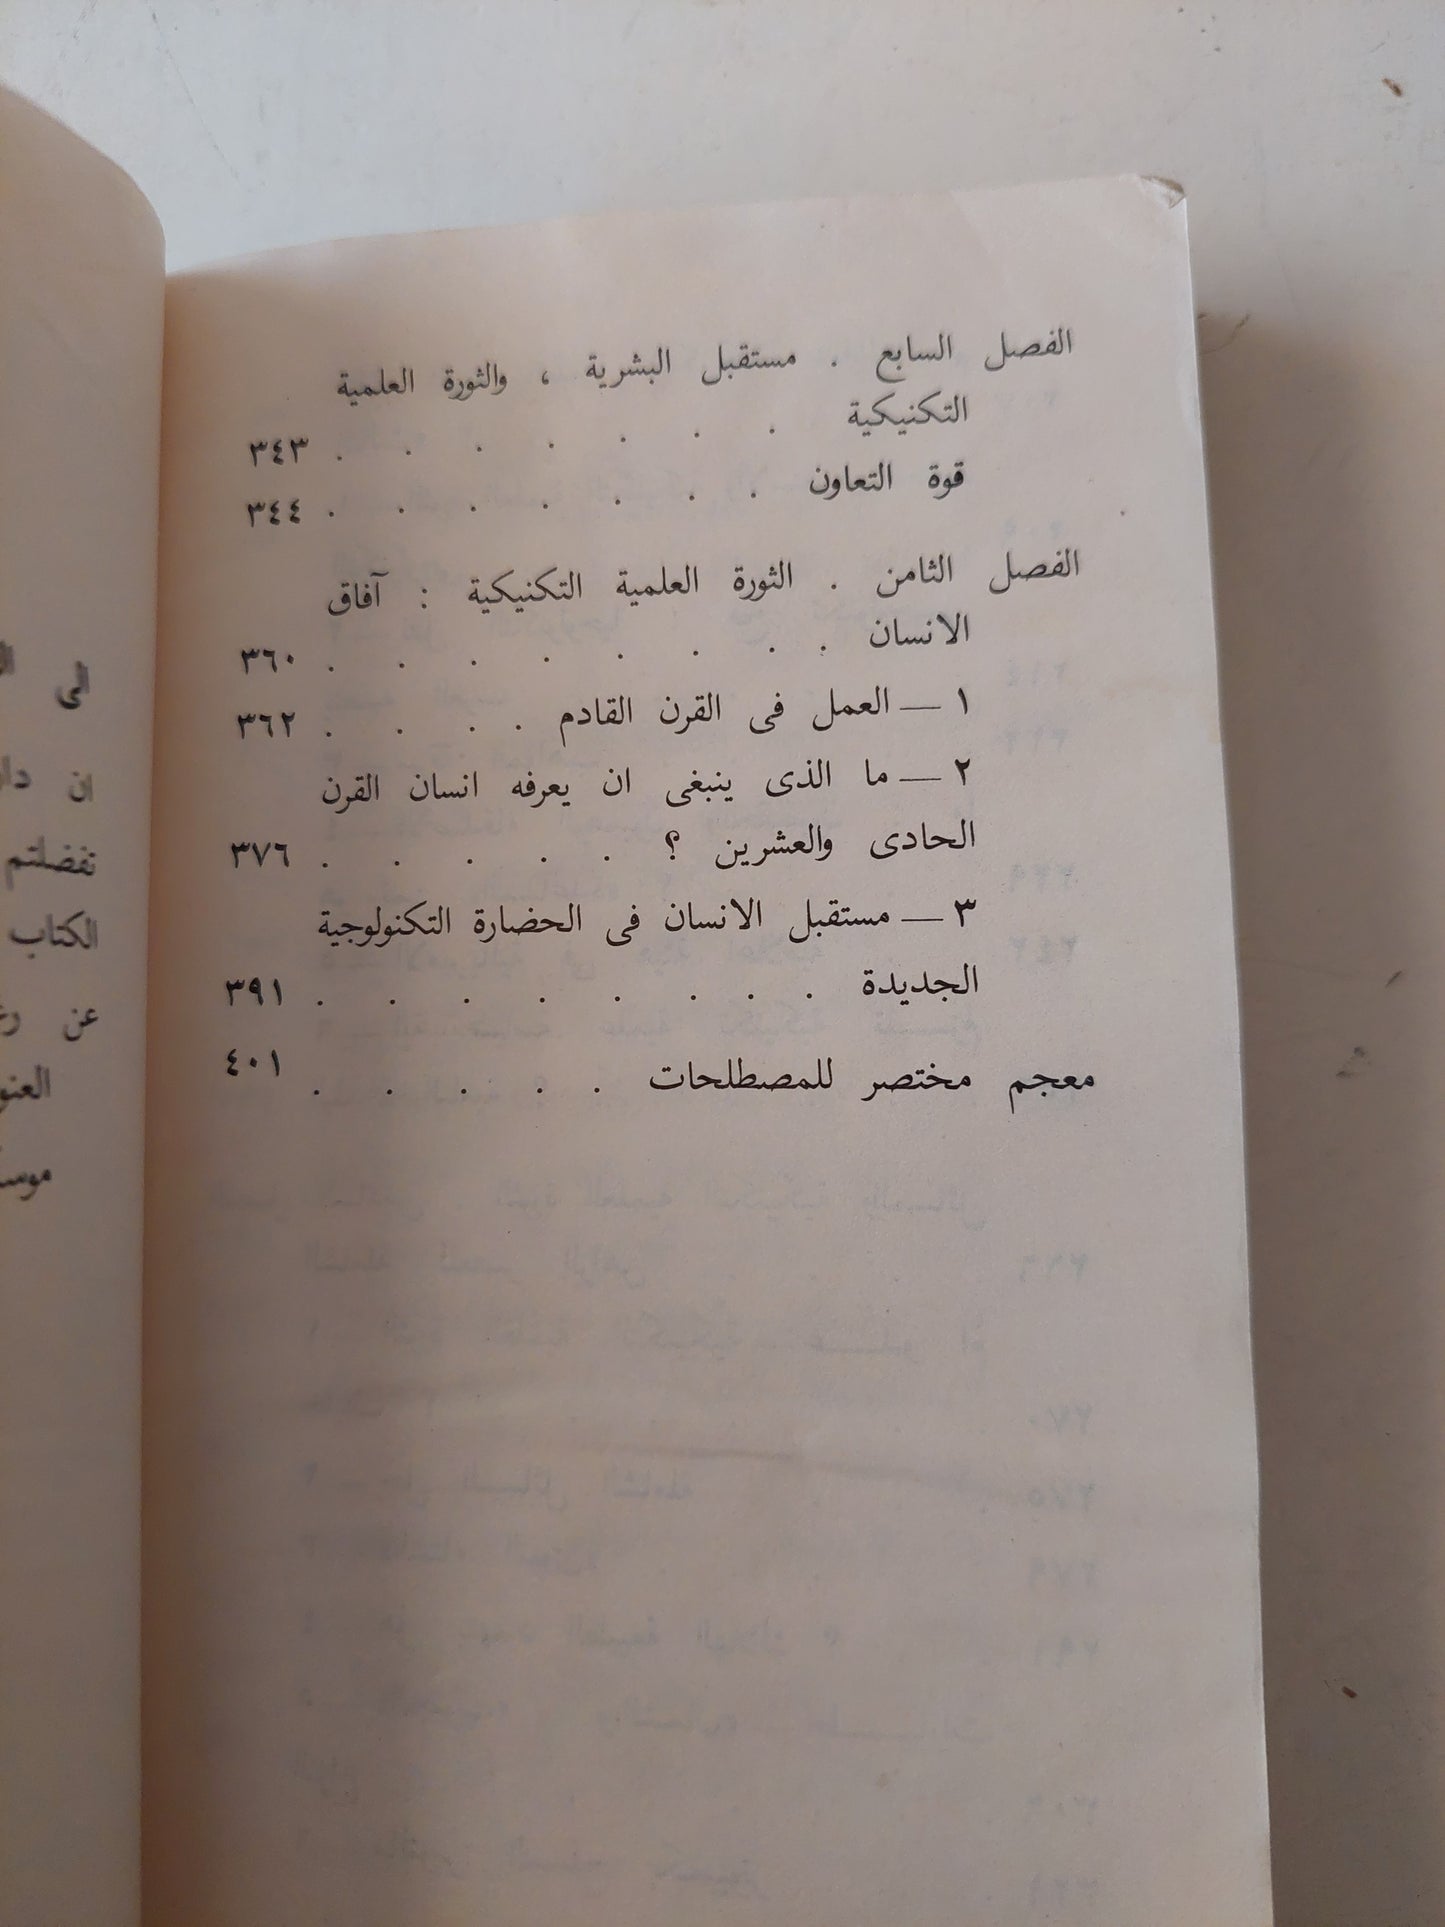 الفصل السابع . مستقبل البشرية ، والثورة العلمية
التكنيكية . . . . . . . ٣٤٣
قوة التعاون . . . . . . . ٣٤٤
الفصل الثامن . الثورة العلمية التكنيكية : آفاق
الانسان . . . . . . . . ٣٦٠
١ — العمل فى القرن القادم . . . . . ٣٦٢
٢ — ما الذى ينبغى ان يعرفه انسان القرن
الحادى والعشرين ؟ . . . . . ٣٧٦
٣ — مستقبل الانسان فى الحضارة التكنولوجية
الجديدة . . . . . . . . ٣٩١
معجم مختصر للمصطلحات . . . . . ٤٠١
الى
ان
تفضلتم
الكتاب
عن